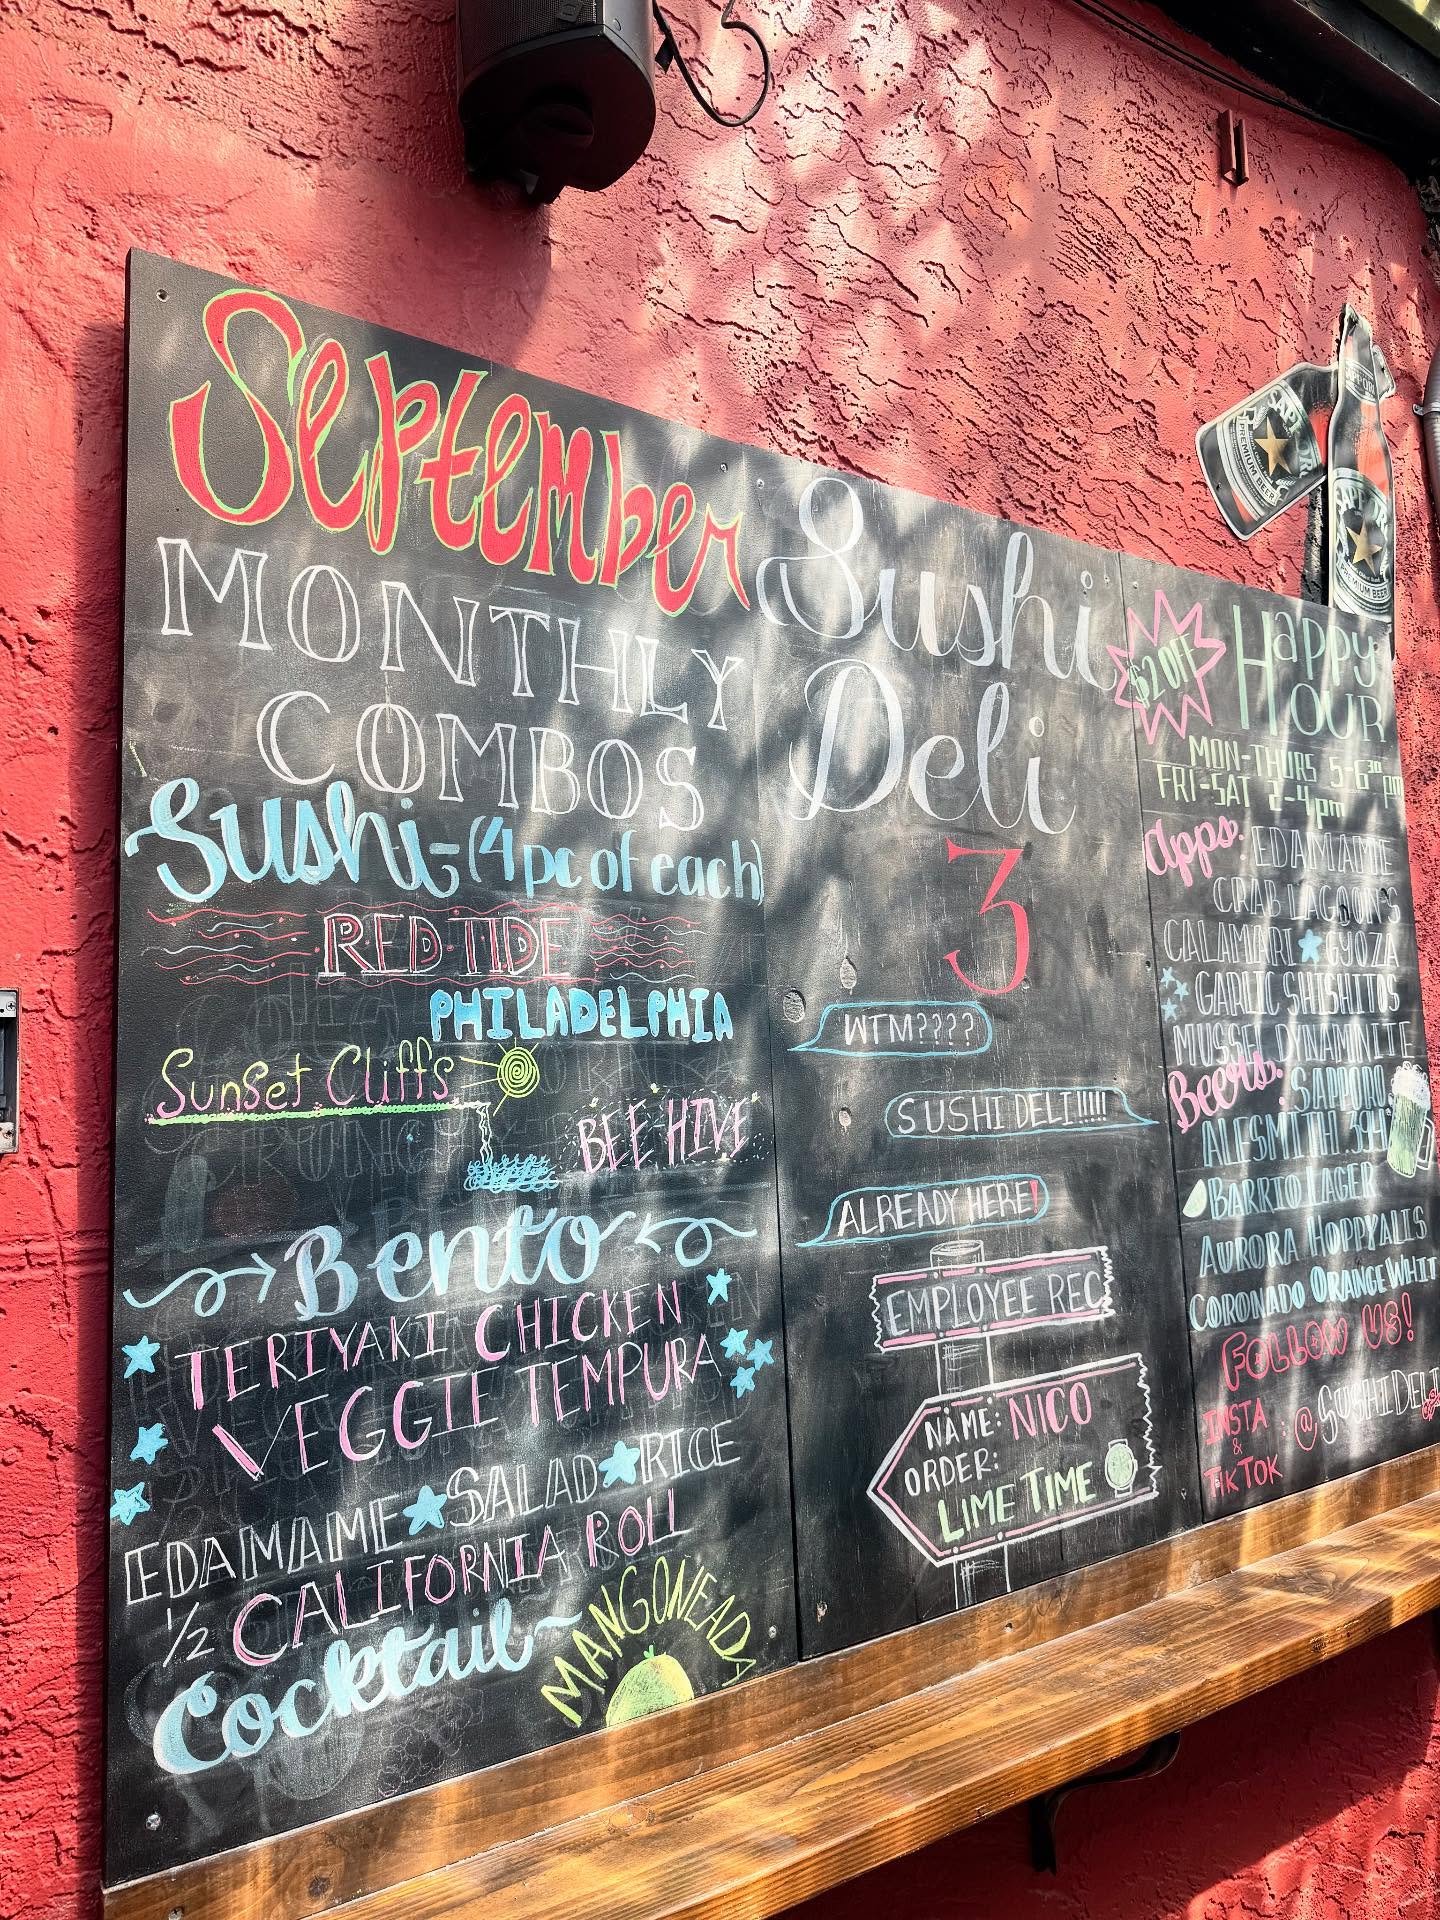 September
MONTHLY
COMBOS
Sushi-(4 pc of each)
RED TIDE
PHILADELPHIA
Sunset Cliffs
BEE HIVE
Bento
TERIYAKI CHICKEN
VEGGIE TEMPURA
EDAMAME SALAD RICE
1/2 CALIFORNIA ROLL
Cocktail~
MANGONEADA
Sushi
Deli
3
WTM????
SUSHI DELI!!!!!
ALREADY HERE!
EMPLOYEE REC
NAME: NICO
ORDER:
LIME TIME
$2 OFF
Happy
HOUR
MON-THURS 5-6³⁰ pm
FRI-SAT 2-4 pm
Apps: EDAMAME
CRAB LAGOONS
CALAMARI GYOZA
GARLIC SHISHITOS
MUSSEL DYNAMNITE
Beers: SAPPORO
ALESMITH .394
BARRIO LAGER
AURORA HOPPYALIS
CORONADO ORANGE WHIT
FOLLOW US!
INSTA
&
TIKTOK
: @SUSHIDELI
PREMIUM BEER
SAPPORO
PREMIUM BEER